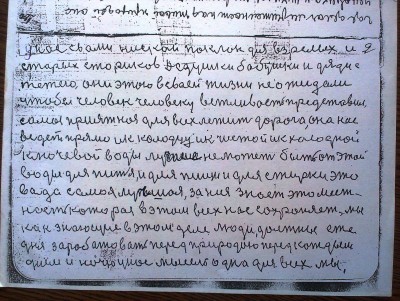 дное своим низкой поклон для взрослих и 2
старых стариков дедушки бабушки и дядя с
тетею, они этого всваей жизни не ожидали
чтобы человек человеку ветливость представил
самая приятная для всех лежит дорога, она нас
ведет прямо ик колодцу ик чистой ик халодной
ключевой воды лутше неможет быть от этой
воды для питя и для пищи и для стирки это
вада самая лутшая, за ния знает это мест-
ность которая в этом всех нас сохроняет, мы
как знающие в этом деле люди должны еже
дня зарабатовать перед природаю перед каждым
днём и ночью мысель одна для всех мы,